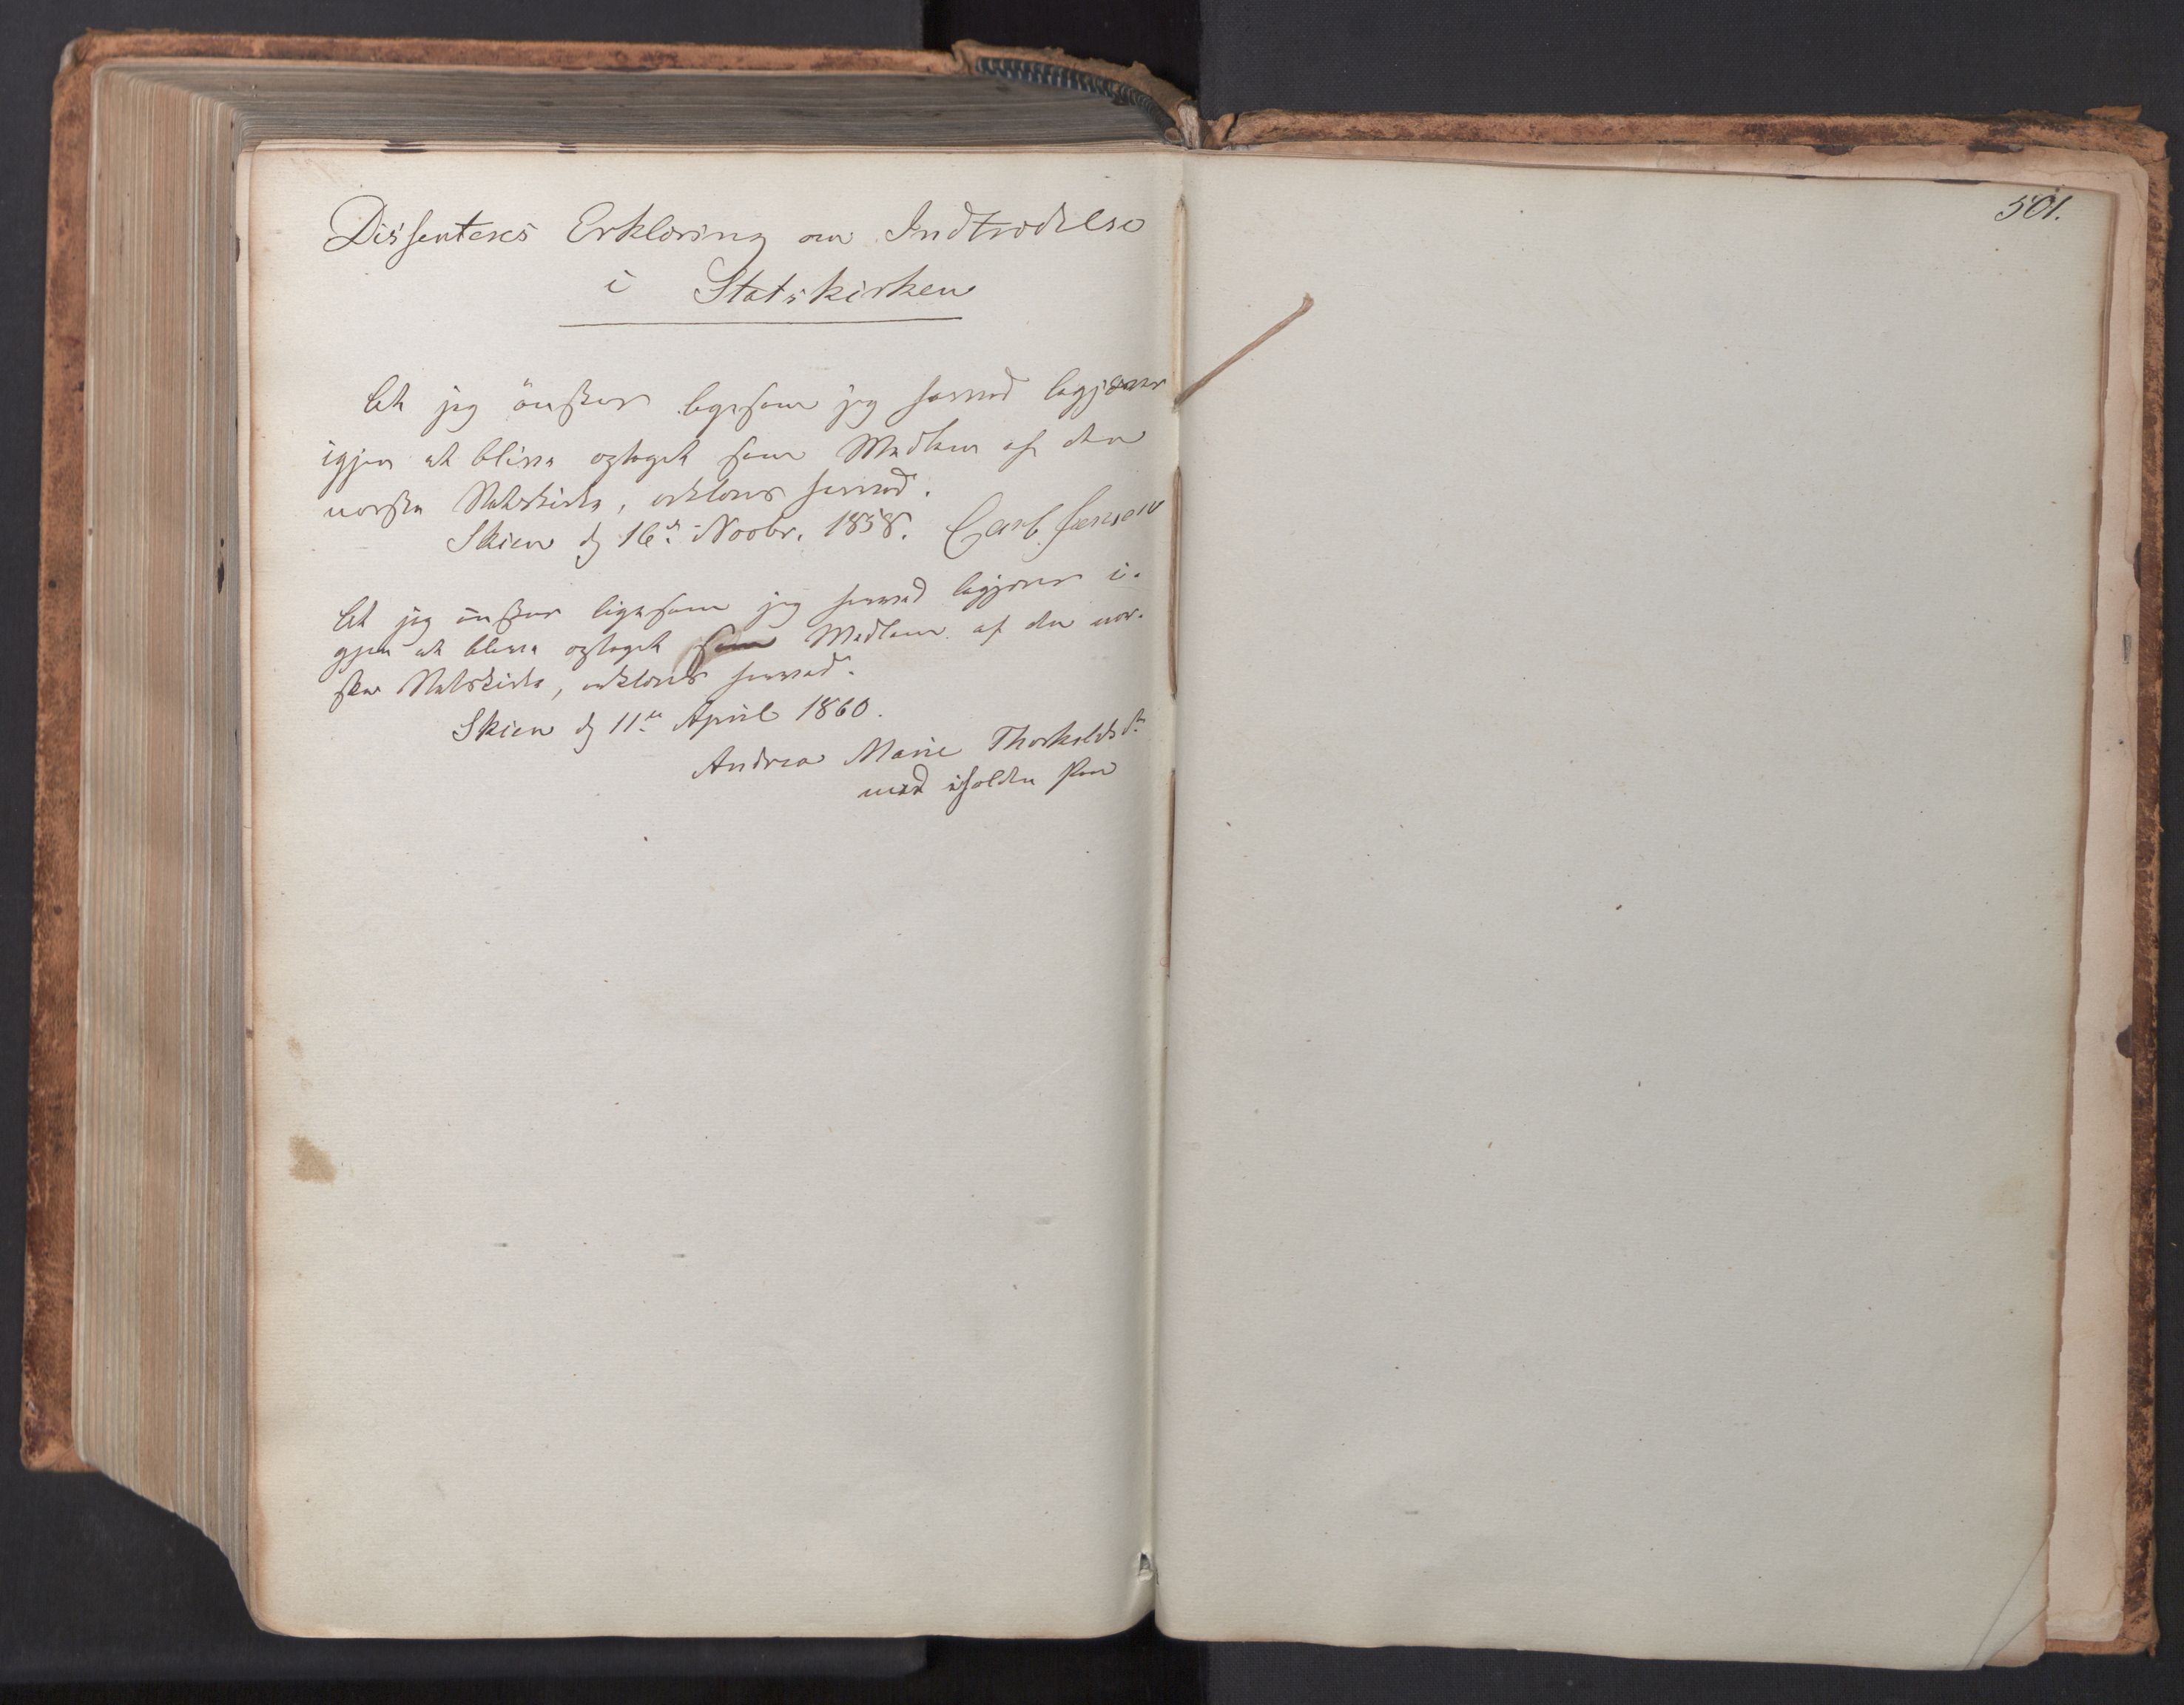 Dissenteres Erklæring om Indtrædelse
i Statskirken
501.
At jeg önsker ligesom jeg herved begjærer
igjen at blive optaget som Medlem af den
norske Statskirke, erklæres herved.
Skien d 16de Novbr. 1858. Carl Jensen
At jeg önsker ligesom jeg herved begjærer i-
gjen at blive optaget som Medlem af den nor-
ske Statskirke, erklæres herved.
Skien d 11te April 1860.
Andrea Marie Thorkeldsdr
med iholden Pen